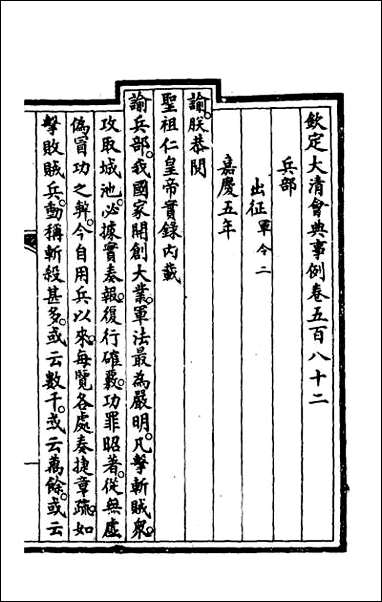 欽定大清會典事例卷五百八十二
兵部
出征軍令二
嘉慶五年
諭。朕恭閱
聖祖仁皇帝實錄內載
諭兵部。我國家開創大業。軍法最為嚴明。凡擊斬賊眾。
攻取城池。必據實奏報。復行確覈。功罪昭著。從無虛
偽冒功之弊。今自用兵以來。每覽各處奏捷章疏。如
擊敗賊兵。動稱斬殺甚多。或云數千。或云萬餘。或云